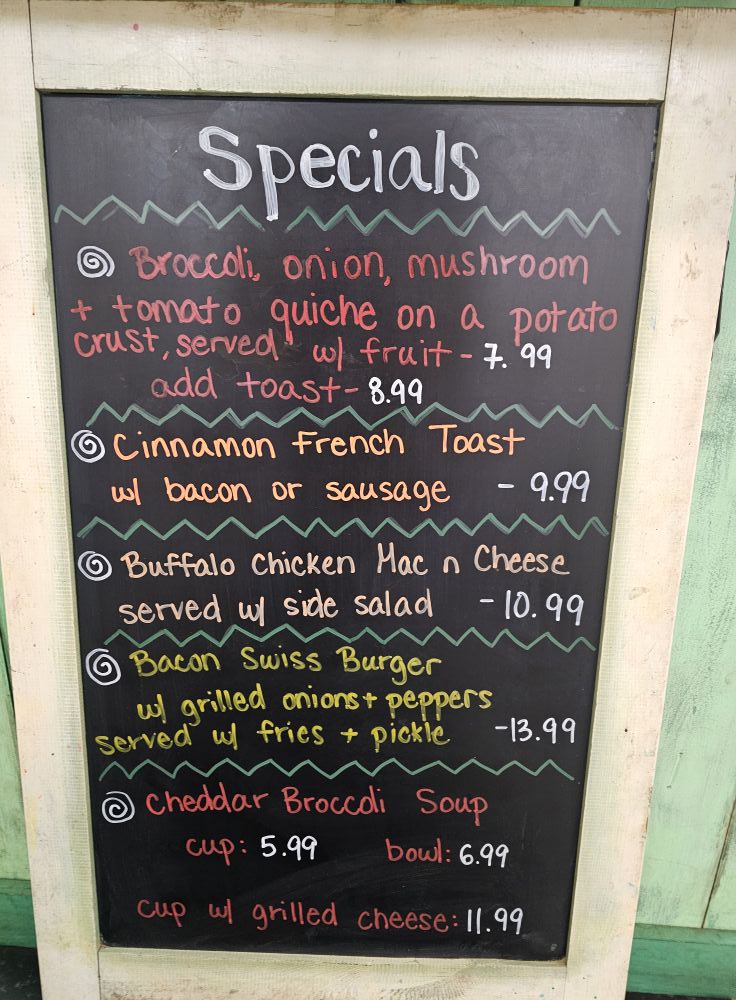 Specials
Broccoli, onion, mushroom
+ tomato quiche on a potato
crust, served w/ fruit - 7.99
add toast - 8.99
Cinnamon French Toast
w/ bacon or sausage - 9.99
Buffalo Chicken Mac n Cheese
served w/ side salad - 10.99
Bacon Swiss Burger
w/ grilled onions + peppers
served w/ fries + pickle - 13.99
Cheddar Broccoli Soup
cup: 5.99 bowl: 6.99
cup w/ grilled cheese: 11.99